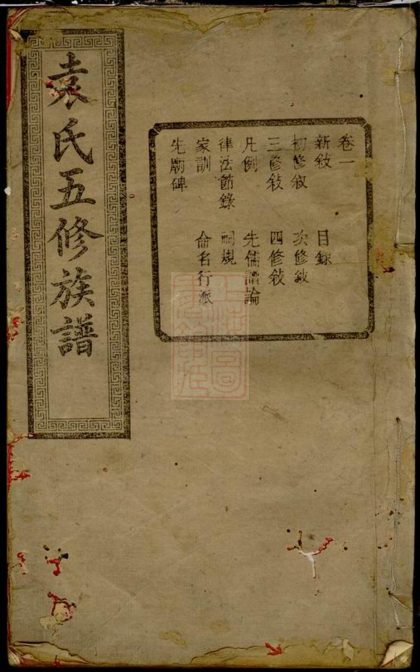 袁氏五修族譜
卷一
新敘 目錄
初修敘 次修敘
三修敘 四修敘
凡例 先儒譜論
律法節錄 祠規
家訓 命名行派
先廟碑